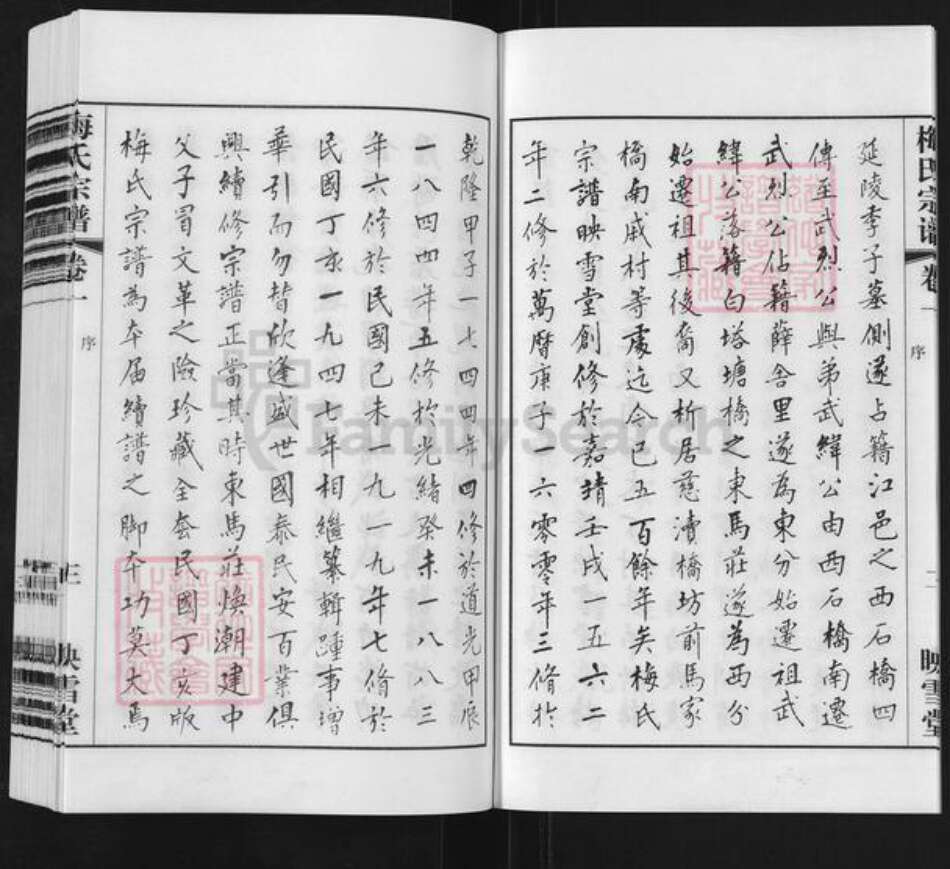 梅氏宗谱 卷一 序 二 映雪堂
延陵季子墓側遂占籍江邑之西石橋四
傳至武烈公與弟武緯公由西石橋南遷
武烈公佔籍薛舍里遂為東分始遷祖武
緯公落籍白塔塘橋之東馬莊遂為西分
始遷祖其後裔又析居慈瀆橋坊前馬家
橋南戚村等處迄今已五百餘年矣梅氏
宗譜映雪堂創修於嘉靖壬戌一五六二
年二修於萬曆庚子一六零零年三修於
乾隆甲子一七四四年四修於道光甲辰
一八四四年五修於光緒癸未一八八三
年六修於民國己未一九一九年七修於
民國丁亥一九四七年相繼纂輯踵事增
華引而勿替欣逢盛世國泰民安百業俱
興續修宗譜正當其時東馬莊煥潮建中
父子冒文革之險珍藏全套民國丁亥版
梅氏宗譜為本届續譜之脚本功莫大焉
梅氏宗譜 卷一 序 三 映雪堂
FamilySearch